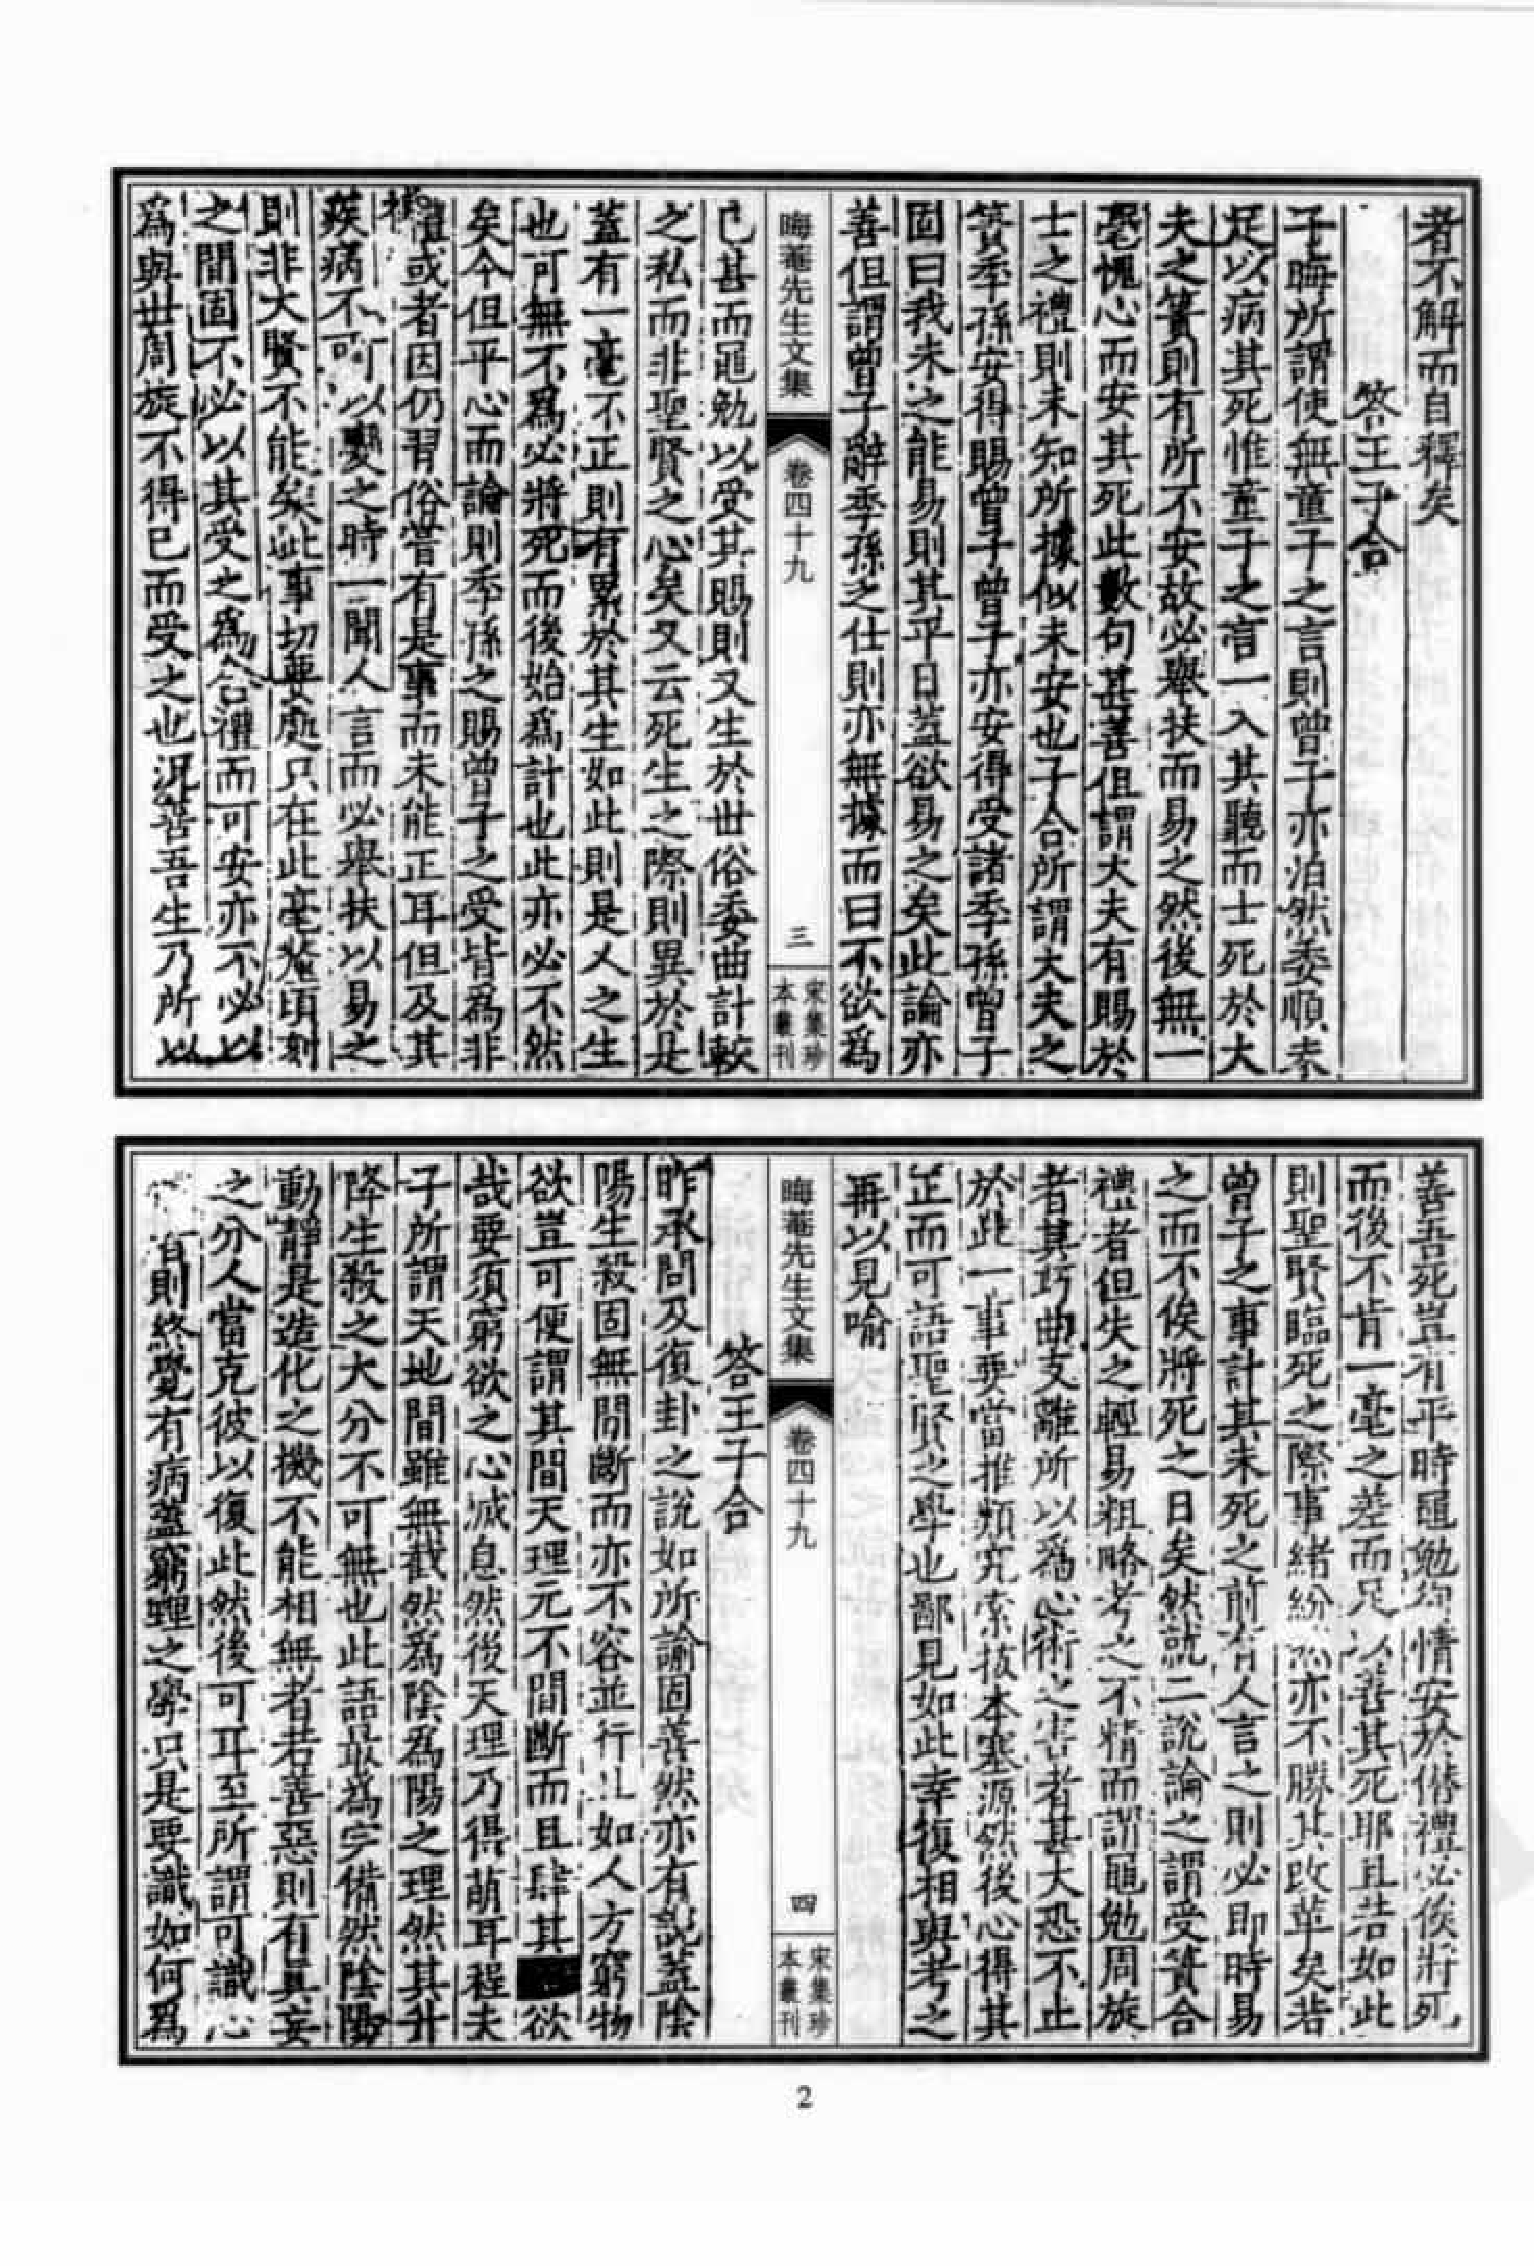 者不解而自釋矣
答王子合
子晦所謂使無童子之言則曾子亦泊然委順未
足以病其死惟童子之言一入其聽而士死於大
夫之簀則有所不安故必舉扶而易之然後無一
毫愧心而安其死此數句甚善但謂大夫有賜於
士之禮則未知所據似未安也子合所謂大夫之
簀季孫安得賜曾子曾子亦安得受諸季孫曾子
固曰我未之能易則其平日蓋欲易之矣此論亦
善但謂曾子辭季孫之仕則亦無據而曰不欲爲
晦菴先生文集
卷四十九
三
宋集珍本叢刊
已甚而黽勉以受其賜則又生於世俗委曲計較
之私而非聖賢之心矣又云死生之際則異於是
蓋有一毫不正則有累於其生如此則是人之生
也可無不爲必將死而後始爲計也此亦必不然
矣今但平心而論則季孫之賜曾子之受皆爲非
禮或者因仍習俗嘗有是事而未能正耳但及其
疾病不可以變之時一聞人言而必舉扶以易之
則非大賢不能矣此事切要處只在此毫釐頃刻
之間固不必以其受之爲合禮而可安亦不必以
爲與世周旋不得已而受之也況善吾生乃所以
善吾死豈有平時黽勉徇情安於僭禮必俟將死
而後不肯一毫之差而足以善其死耶且若如此
則聖賢臨死之際事緒紛亦不勝其改革矣若
曾子之事計其未死之前有人言之則必即時易
之而不俟將死之日矣然就二說論之謂受簀合
禮者但失之輕易粗略考之不精而謂黽勉周旋
者其巧曲支離所以爲心術之害者甚大恐不止
於此一事要當推類究索拔本塞源然後心得其
正而可語聖賢之學也鄙見如此幸復相與考之
再以見喻
晦菴先生文集
卷四十九
四
宋集珍本叢刊
答王子合
昨承問及復卦之說如所諭固善然亦有說蓋陰
陽生殺固無間斷而亦不容並行且如人方窮物
欲豈可便謂其間天理元不間斷而且肆其欲
哉要須窮欲之心滅息然後天理乃得萌耳程夫
子所謂天地間雖無截然爲陰爲陽之理然其升
降生殺之大分不可無也此語最爲完備然陰陽
動靜是造化之機不能相無者若善惡則有真妄
之分人當克彼以復此然後可耳至所謂可識心
則終覺有病蓋窮理之學只是要識如何爲